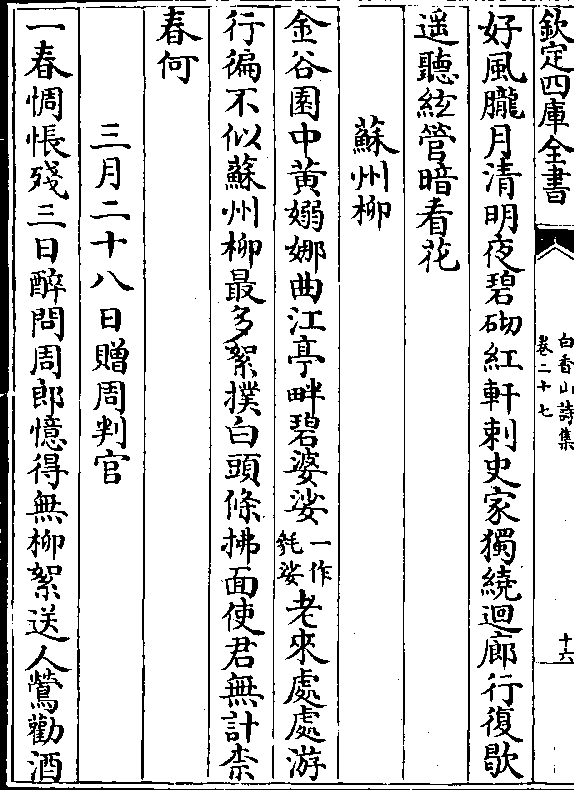 欽定四庫全書
白香山詩集
卷二十七
十六
好風朧月清明夜碧砌紅軒刺史家獨繞迴廊行復歇
遥聽絃管暗看花
蘇州柳
金谷園中黄嫋娜曲江亭畔碧婆娑一作毿娑老來處處游
行徧不似蘇州柳最多絮撲白頭條拂面使君無計柰
春何
三月二十八日贈周判官
一春惆悵殘三日醉問周郎憶得無柳絮送人鶯勸酒